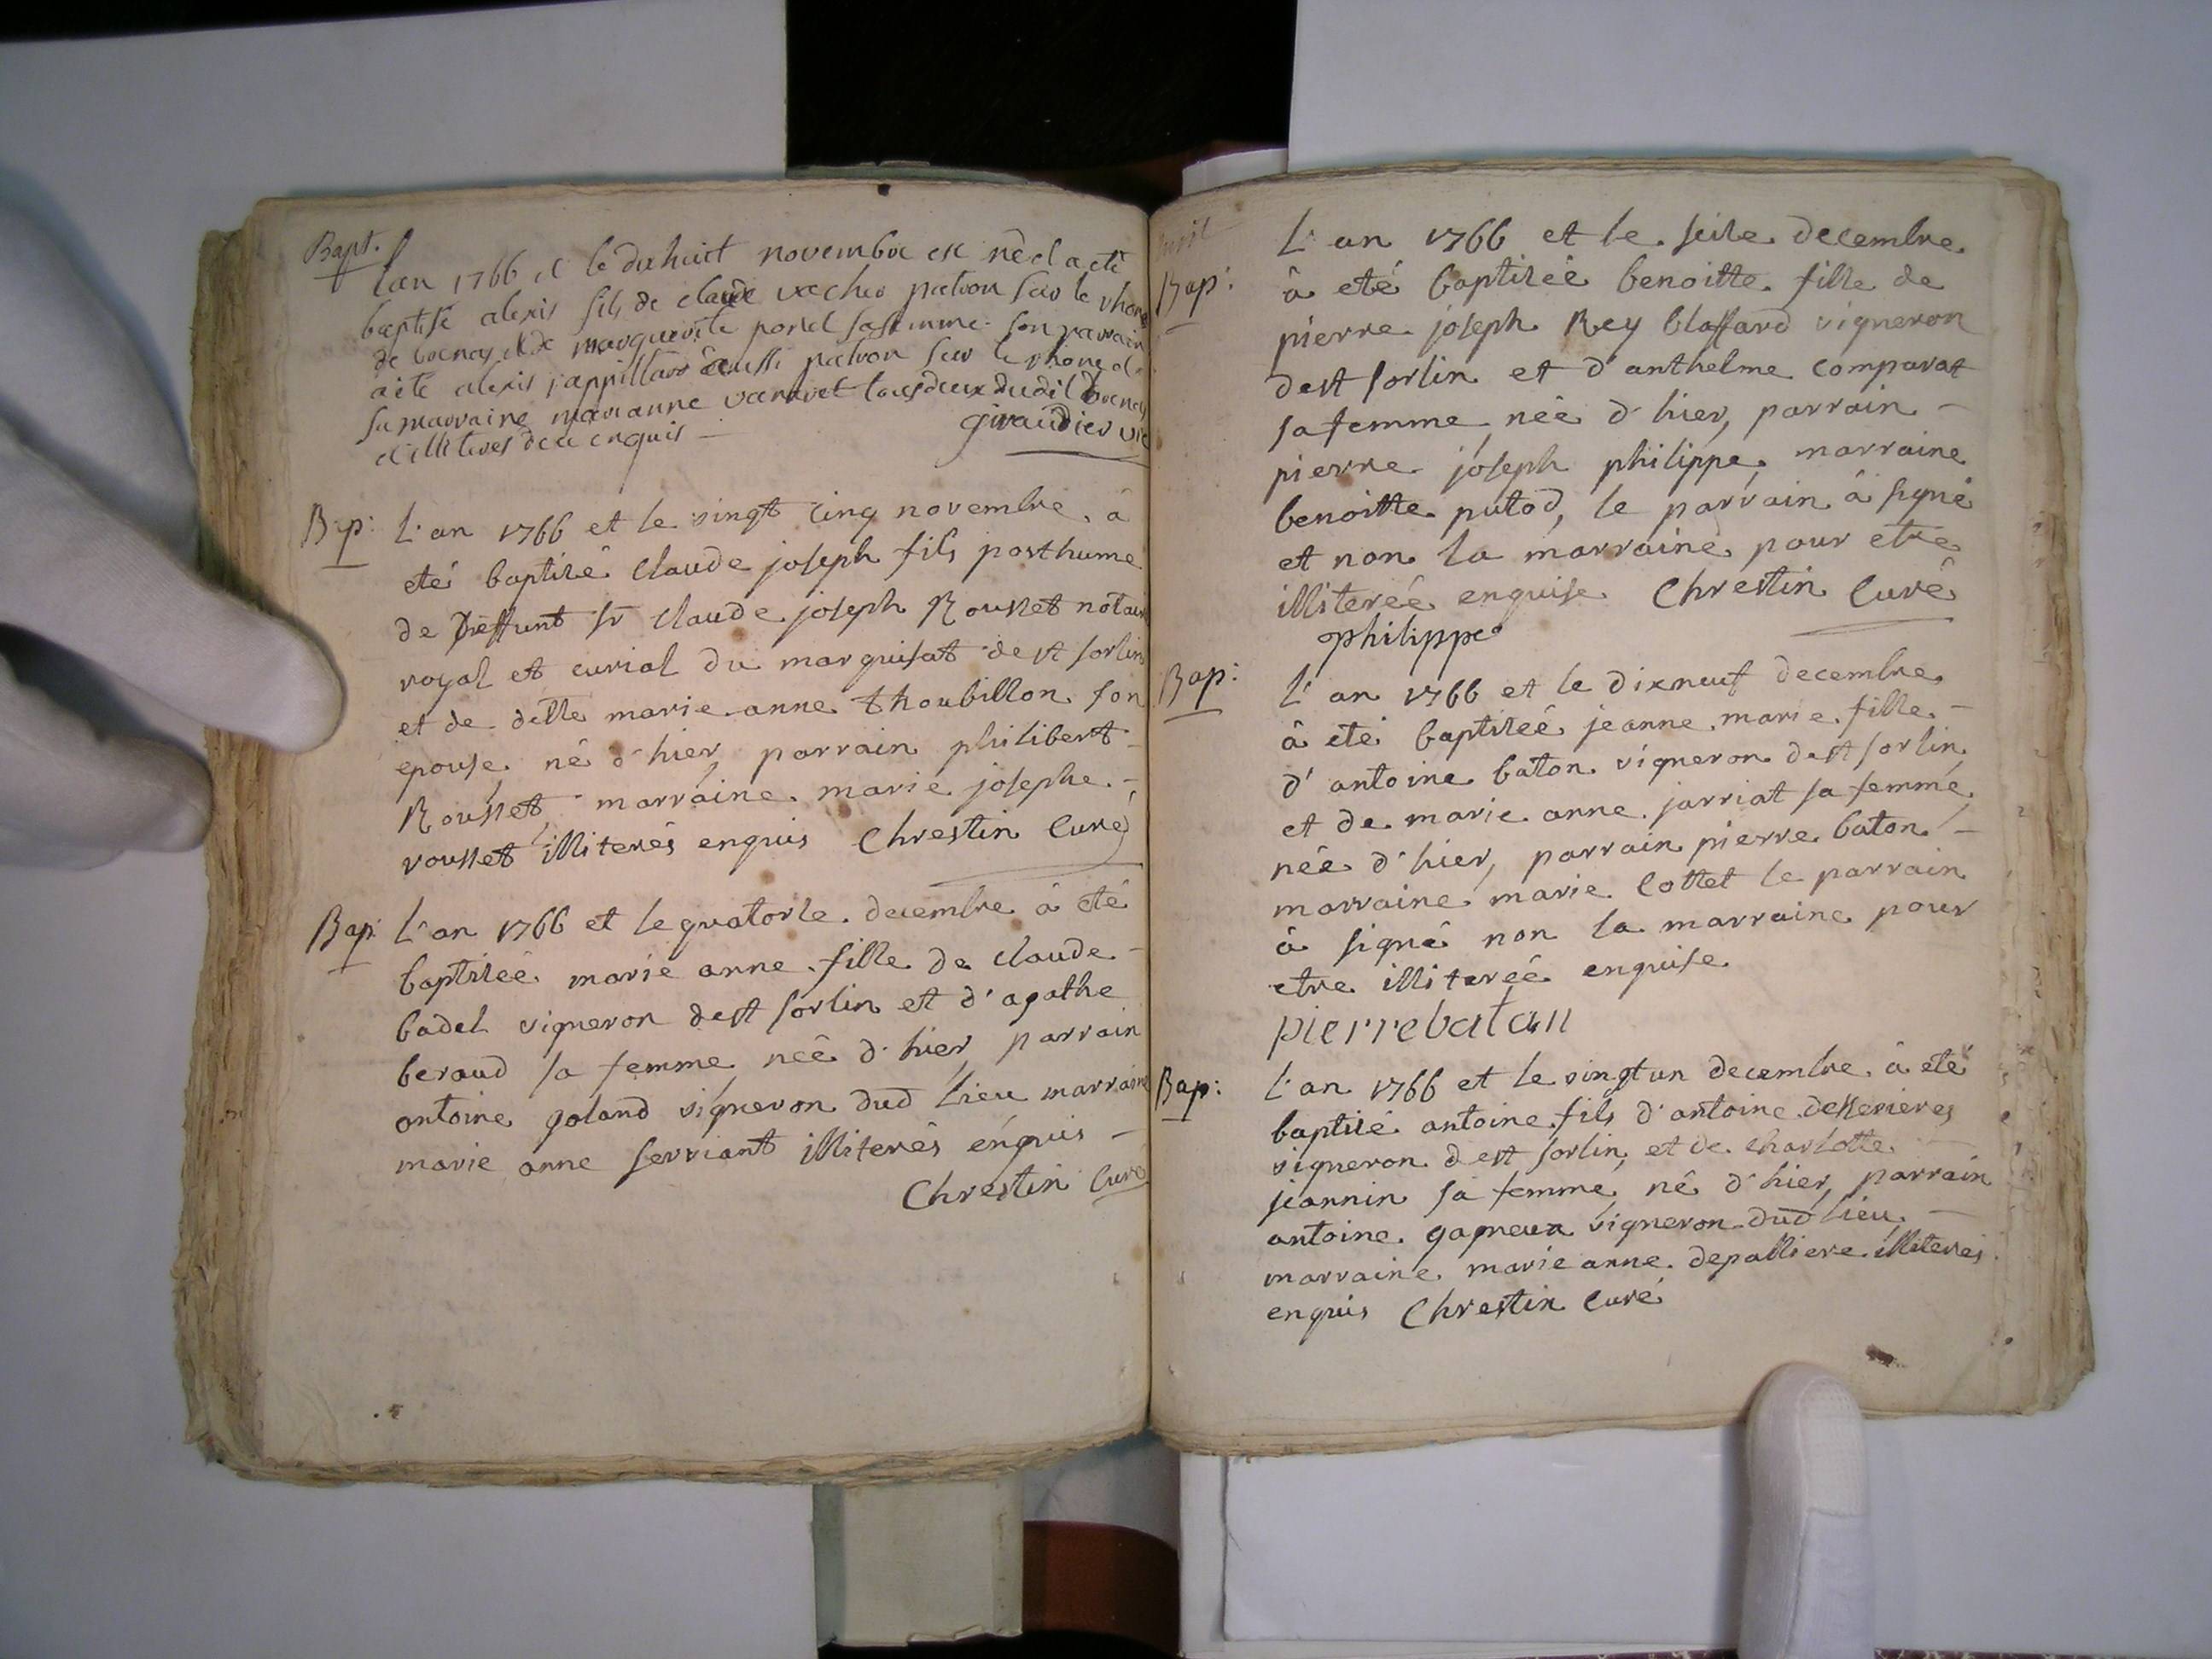 Bapt.
Lan 1766 et le dix huit novembre est né et a eté
baptisé alexis fils de claude vacher patron sur le rhone
de brenas et de marguerite ponet sa femme son parrain
a eté alexis jappillard aussi patron sur le rhone et
sa marraine marianne vanaret tous deux dudit brenas
et illiteres de ce enquis —
giraudier vic
Bap: L'an 1766 et le vingt cinq novembre à
eté baptizé Claude joseph fils posthume
de Deffunt sr Claude joseph Rousset notaire
royal et curial du marquisat de st sorlin
et de delle marie anne throubillon son
epouse né d'hier, parrain philibert
Rousset marraine marie josephe
rousset illiterés enquis Chrestin Curé
Bap: L'an 1766 et le quatorze decembre à eté
baptizeé marie anne fille de claude
badel vigneron de st sorlin et d'agathe
beraud sa femme neé d'hier, parrain
antoine goland vigneron dud lieu marraine
marie anne serviant illiterés enquis —
Chrestin Curé
Bap: L'an 1766 et le seize decembre
à eté baptizeé benoitte fille de
pierre joseph Rey blassard vigneron
de st sorlin et d'anthelme comparat
sa femme neé d'hier, parrain —
pierre joseph philippe, marraine
benoitte putod, le parrain à signé
et non la marraine pour etre
illitereé enquise Chrestin Curé
philippe
Bap: L'an 1766 et le dixneuf decembre
à eté baptizeé jeanne marie fille —
d'antoine baton vigneron de st sorlin
et de marie anne jarriat sa femme,
née d'hier, parrain pierre baton —
marraine marie Cottet le parrain
à signé non la marraine pour
etre illitereé enquise
pierre batan
Bap: L'an 1766 et le vingt un decembre à eté
baptizé antoine fils d'antoine desserieres
vigneron de st sorlin, et de charlotte
jeannin sa femme, né d'hier, parrain
antoine gagneux vigneron dud lieu —
marraine marie anne depalliere illiteres
enquis Chrestin curé